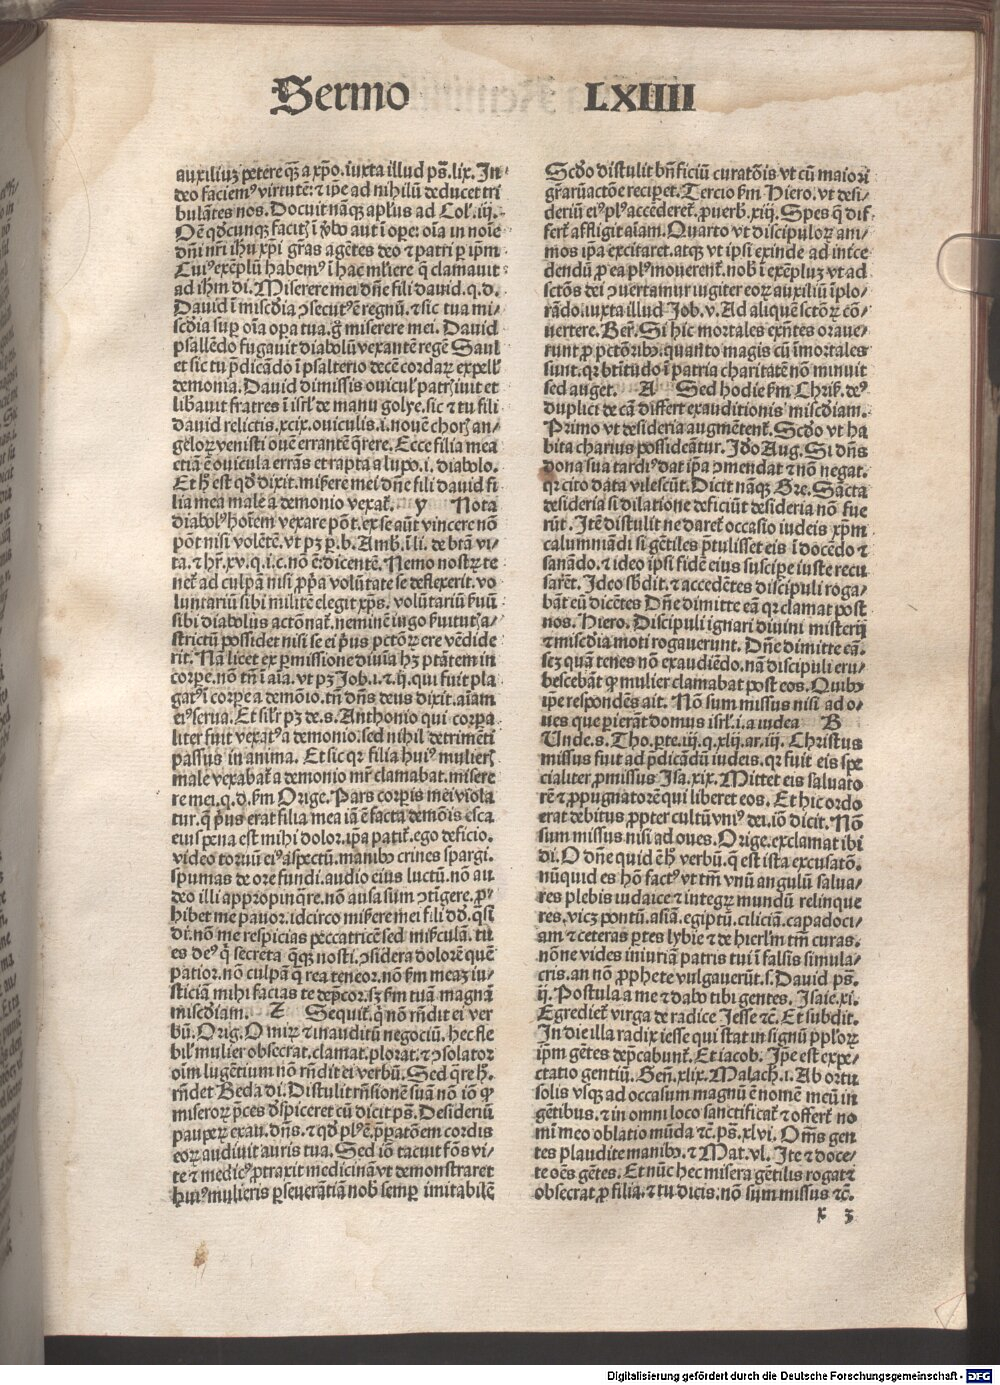 Sermo LXIIII
auxiliuȝ petere qȝ a xp̄o. iuxta illud ps̄. lix. In
deo faciemꝰ virtutē: ⁊ ip̄e ad nihilū deducet tri
bulātes nos. Docuit nāqȝ apl̓us ad Col̓. iij.
Oē qd̓cunqȝ facit̓ ī v̓bo aut ī ope: oīa in noīe
dn̄i nr̄i ih̓u xp̄i gr̄as agētes deo ⁊ patri ꝑ ip̄m
Cuiꝰ exēplū habemꝰ ī hac ml̓iere q̄ clamauit
ad ih̓m di. Miserere mei dn̄e fili dauid. q. d.
Dauid ī mis̓dia ↄsecut̓ ē regnū. ⁊ sic tua mi-
sc̓dia suꝑ oīa oꝑa tua. g̊ miserere mei. Dauid
psallēdo fugauit diabolū vexantē regē Saul
et sic tu p̄dicādo ī psalterio decē cordaꝝ expell̓
demonia. Dauid dimissis ouicul̓ pat̓ iuit et
lib̓auit fratres ī isrl̓ de manu golye. sic ⁊ tu fili
dauid relictis. xcix. ouiculis. i. nouē chor̓ an/
geloꝝ venisti ouē errantē q̄rere. Ecce filia mea
etiā ē ouicula errās et rapta a lupo. i. diabolo.
Et h̓ est qd̓ dixit. mis̓ere mei dn̄e fili dauid fi
lia mea male a demonio vexat̓. y Nota
diabolꝰ hoīem vexare pōt. ex se aūt vincere nō
pōt nisi volētē. vt pȝ p̄. b. Amb. ī li. de btā vi/
ta. ⁊ hr̄. xv. q. i. c. nō ē. dicente. Nemo nostꝝ te
net̓ ad culpā nisi ꝓp̄a volūtate se deflexerit. vo
luntariū sibi militē elegit xp̄s. volūtariū s̓uū
sibi diabolus actōnat̓. neminē iugo s̓uitut̓ a/
strictū possidet nisi se ei p̓us pctōꝝ ere vēdide
rit. Nā licet ex ꝑmissione diuīa hȝ ptātem in
corpe. nō tn̄ ī aīa. vt pȝ Job. i. ⁊ ij. qui fuit pla
gatꝰ ī corpe a demōio. tn̄ dn̄s deus dixit. aīam
eiꝰ serua. Et sil̓r pȝ de. s. Anthonio qui corpa
liter fuit vexatꝰ a demonio. sed nihil detrimēti
passus in anima. Et sic qr filia huiꝰ mulier̓
male vexabat̓ a demonio mr̄ clamabat. misere
re mei. q. d. s̓m Orige. Pars corpis mei viola
tur. q̄ p̓us erat filia mea iā ē facta demōis esca
eius pena est mihi dolor. ip̄a patit̓. ego deficio.
video toruū eiꝰ aspectū. manibꝰ crines spargi.
spumas de ore fundi. audio eius luctū. nō au
deo illi appropinq̄re. nō ausa sum ↄtīgere. ꝓ/
hibet me pauor. idcirco mis̓ere mei fili dd̓. q̄si
di. nō me respicias peccatricē sed mis̓culā. tu
es deꝰ q̇ secreta q̄qȝ nosti. ↄsidera dolorē quē
patior. nō culpā q̄ rea teneor. nō s̓m meaȝ iu/
sticiā mihi facias te dep̄cor. sȝ s̓m tuā magnā
misc̓diam. Z Sequit̓. q̇ nō rn̄dit ei ver
bū. Orig. O miꝝ ⁊ inauditū negociū. hec fle
bil̓ mulier obsecrat. clamat. plorat. ⁊ ↄsolator
oīm lugētium nō rn̄dit ei verbū. Sed q̄re h̓.
rn̄det Beda di. Distulit rn̄sionē suā nō iō ꝙ
miseroꝝ p̄ces d̓spiceret cū dicit ps̄. Desideriū
pauꝑeꝝ exau. dn̄s. ⁊ qd̓ plꝰ ē. p̄paratōem cordis
eoꝝ audiuit auris tua. Sed iō tacuit fōs vi/
te ⁊ medicꝰ ꝓtraxit medicinā vt demonstraret
huiꝰ mulieris ꝑseuerātiā nob̓ semꝑ imitabilē
Scd̓o distulit bn̄ficiū curatōis vt cū maiori
gr̄aꝝ actōe recipet. Tercio s̓m Hiero. vt desi/
deriū eiꝰ plꝰ accēderet̓. ꝓuerb. xiij. Spes q̄ dif
fert̓ affligit aīam. Quarto vt discipuloꝝ ani/
mos ip̄a excitaret. atqȝ vt ipsi exinde ad int̓ce
dendū ꝓ ea plꝰ mouerent̓. nob̓ ī exēpluȝ vt ad
sctōs dei ↄuertamur iugiter eoꝝ auxiliū īplo/
rādo. iuxta illud Job. v. Ad aliquē sctōꝝ cō/
uertere. Ber̄. Si hic mortales exn̄tes oraue/
runt ꝓ pctōribꝰ. quāto magis cū īmortales
sunt. qr btitudo ī patria charitatē nō minuit
sed auget. A Sed hodie s̓m Chris̓. deꝰ
duplici de cā differt exauditionis misc̓diam.
Primo vt desideria augmētent̓. Scd̓o vt ha
bita charius possideātur. Jd̓o Aug. Si dn̄s
dona sua tardiꝰ dat ip̄a ↄmendat ⁊ nō negat.
qr cito data vilescūt. Dicit nāqȝ Gre. Sācta
desideria si dilatione deficiūt desideria nō fue
rūt. Jtē distulit ne daret̓ occasio iudeis xp̄m
calumniādi si gētiles p̄tulisset eis ī docēdo ⁊
sanādo. ⁊ ideo ipsi fidē eius suscipe iuste recu
sarēt. Jdeo sb̓dit. ⁊ accedētes discipuli roga/
bāt eū dicētes Dn̄e dimitte eā qr clamat post
nos. Hiero. Discipuli ignari diuini misterij
⁊ misc̓dia moti rogauerunt. Dn̄e dimitte eā.
scȝ quā tenes nō exaudiēdo. nā discipuli eru/
bescebāt ꝙ mulier clamabat post eos. Quibꝰ
ip̄e respondēs ait. Nō sum missus nisi ad o/
ues que perierāt domus isrl̓. i. a iudea B
Unde. s. Tho. ꝑte. iij. q. xlij. ar. iij. Christus
missus fuit ad p̄dicādū iudeis. qr fuit eis spe
cialiter ꝓmissus Jsa. xix. Mittet eis saluato
rē ⁊ ꝓpugnatorē qui liberet eos. Et hic ordo
erat debitus ꝓpter cultū vniꝰ dei. iō dicit. Nō
sum missus nisi ad oues. Orige. exclamat ibi
di. O dn̄e quid ē h̓ verbū. q̄ est ista excusatō.
nūquid es hō factꝰ vt tm̄ vnū angulū salua/
res plebis iudaice ⁊ integꝝ mundū relinque
res. vicȝ pontū. asiā. egiptū. ciliciā. capadoci/
am ⁊ ceteras ꝑtes lybie ⁊ de hierl̓m tm̄ curas.
nōne vides iniuriā patris tui ī falsis simula/
cris. an nō ꝓphete vulgauerūt. s. Dauid ps̄.
ij. Postula a me ⁊ dabo tibi gentes. Jsaie. xi.
Egrediet̓ virga de radice Jesse ⁊c̄. Et subdit.
In die illa radix iesse qui stat in signū pploꝝ
ip̄m gētes dep̄cabunt̓. Et iacob. Jpe est expe/
ctatio gentiū. Gen̄. xlix. Malach. i. Ab ortu
solis vsqȝ ad occasum magnū ē nomē meū in
gētibus. ⁊ in omni loco sanctificat̓ ⁊ offert̓ no
mī meo oblatio mūda ⁊c̄. ps̄. xlvi. Oms̄ gen
tes plaudite manibꝰ. ⁊ Mat. vl. Jte ⁊ doce/
te oēs gētes. Et nūc hec misera gētilis rogat ⁊
obsecrat ꝓ filia. ⁊ tu dicis. nō sum missus ⁊c̄.
x 3
Digitalisierung gefördert durch die Deutsche Forschungsgemeinschaft - DFG